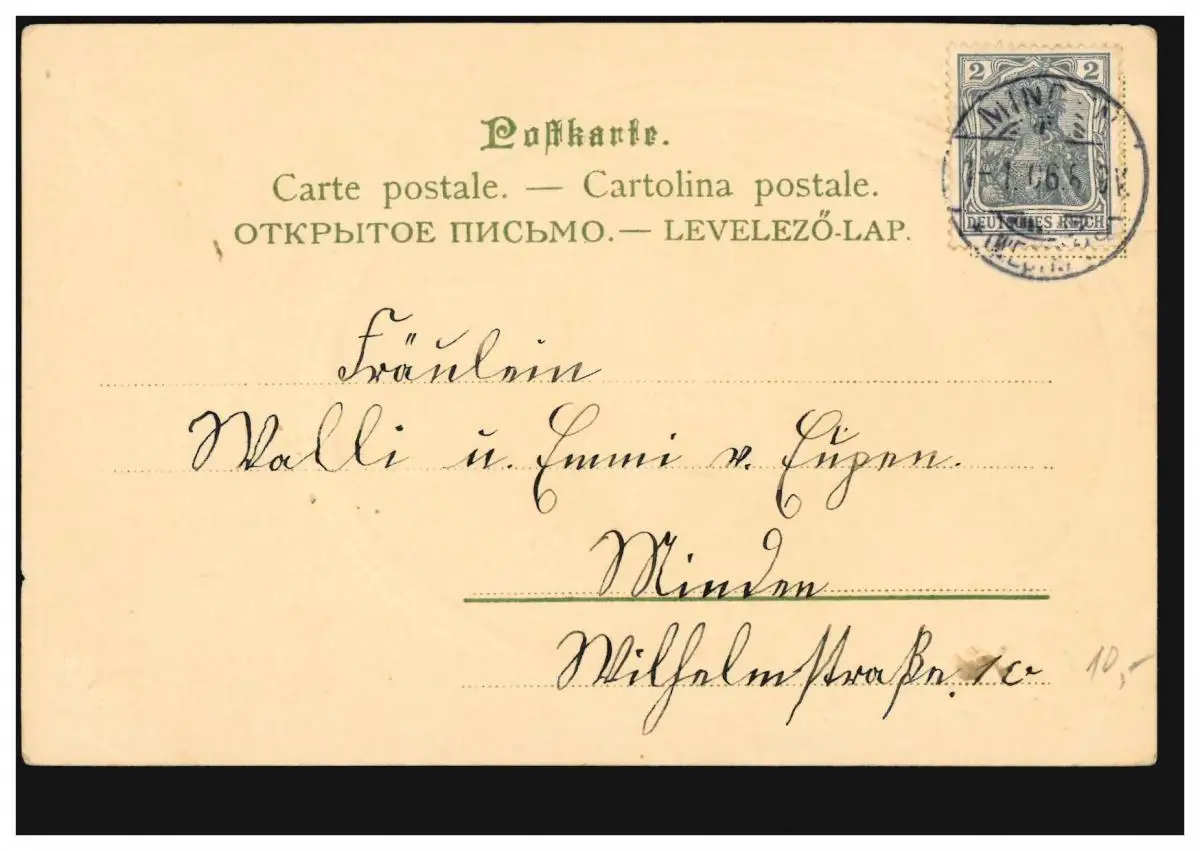 Postkarte.
Carte postale. — Cartolina postale.
ОТКРЫТОЕ ПИСЬМО. — LEVELEZŐ-LAP.
2 2
DEUTSCHES REICH
Fräulein
Walli u. Emmi v. Eupen.
Minden
Wilhelmstraße 1c
10,-